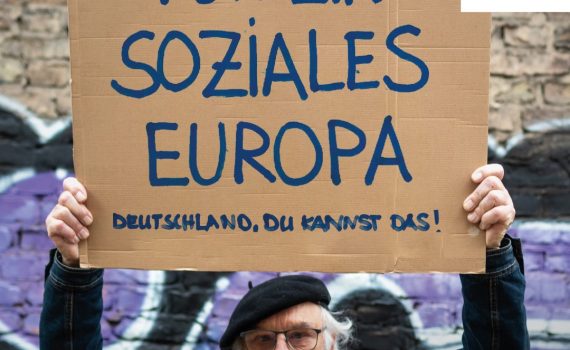 SOZIALES
EUROPA
DEUTSCHLAND, DU KANNST DAS!